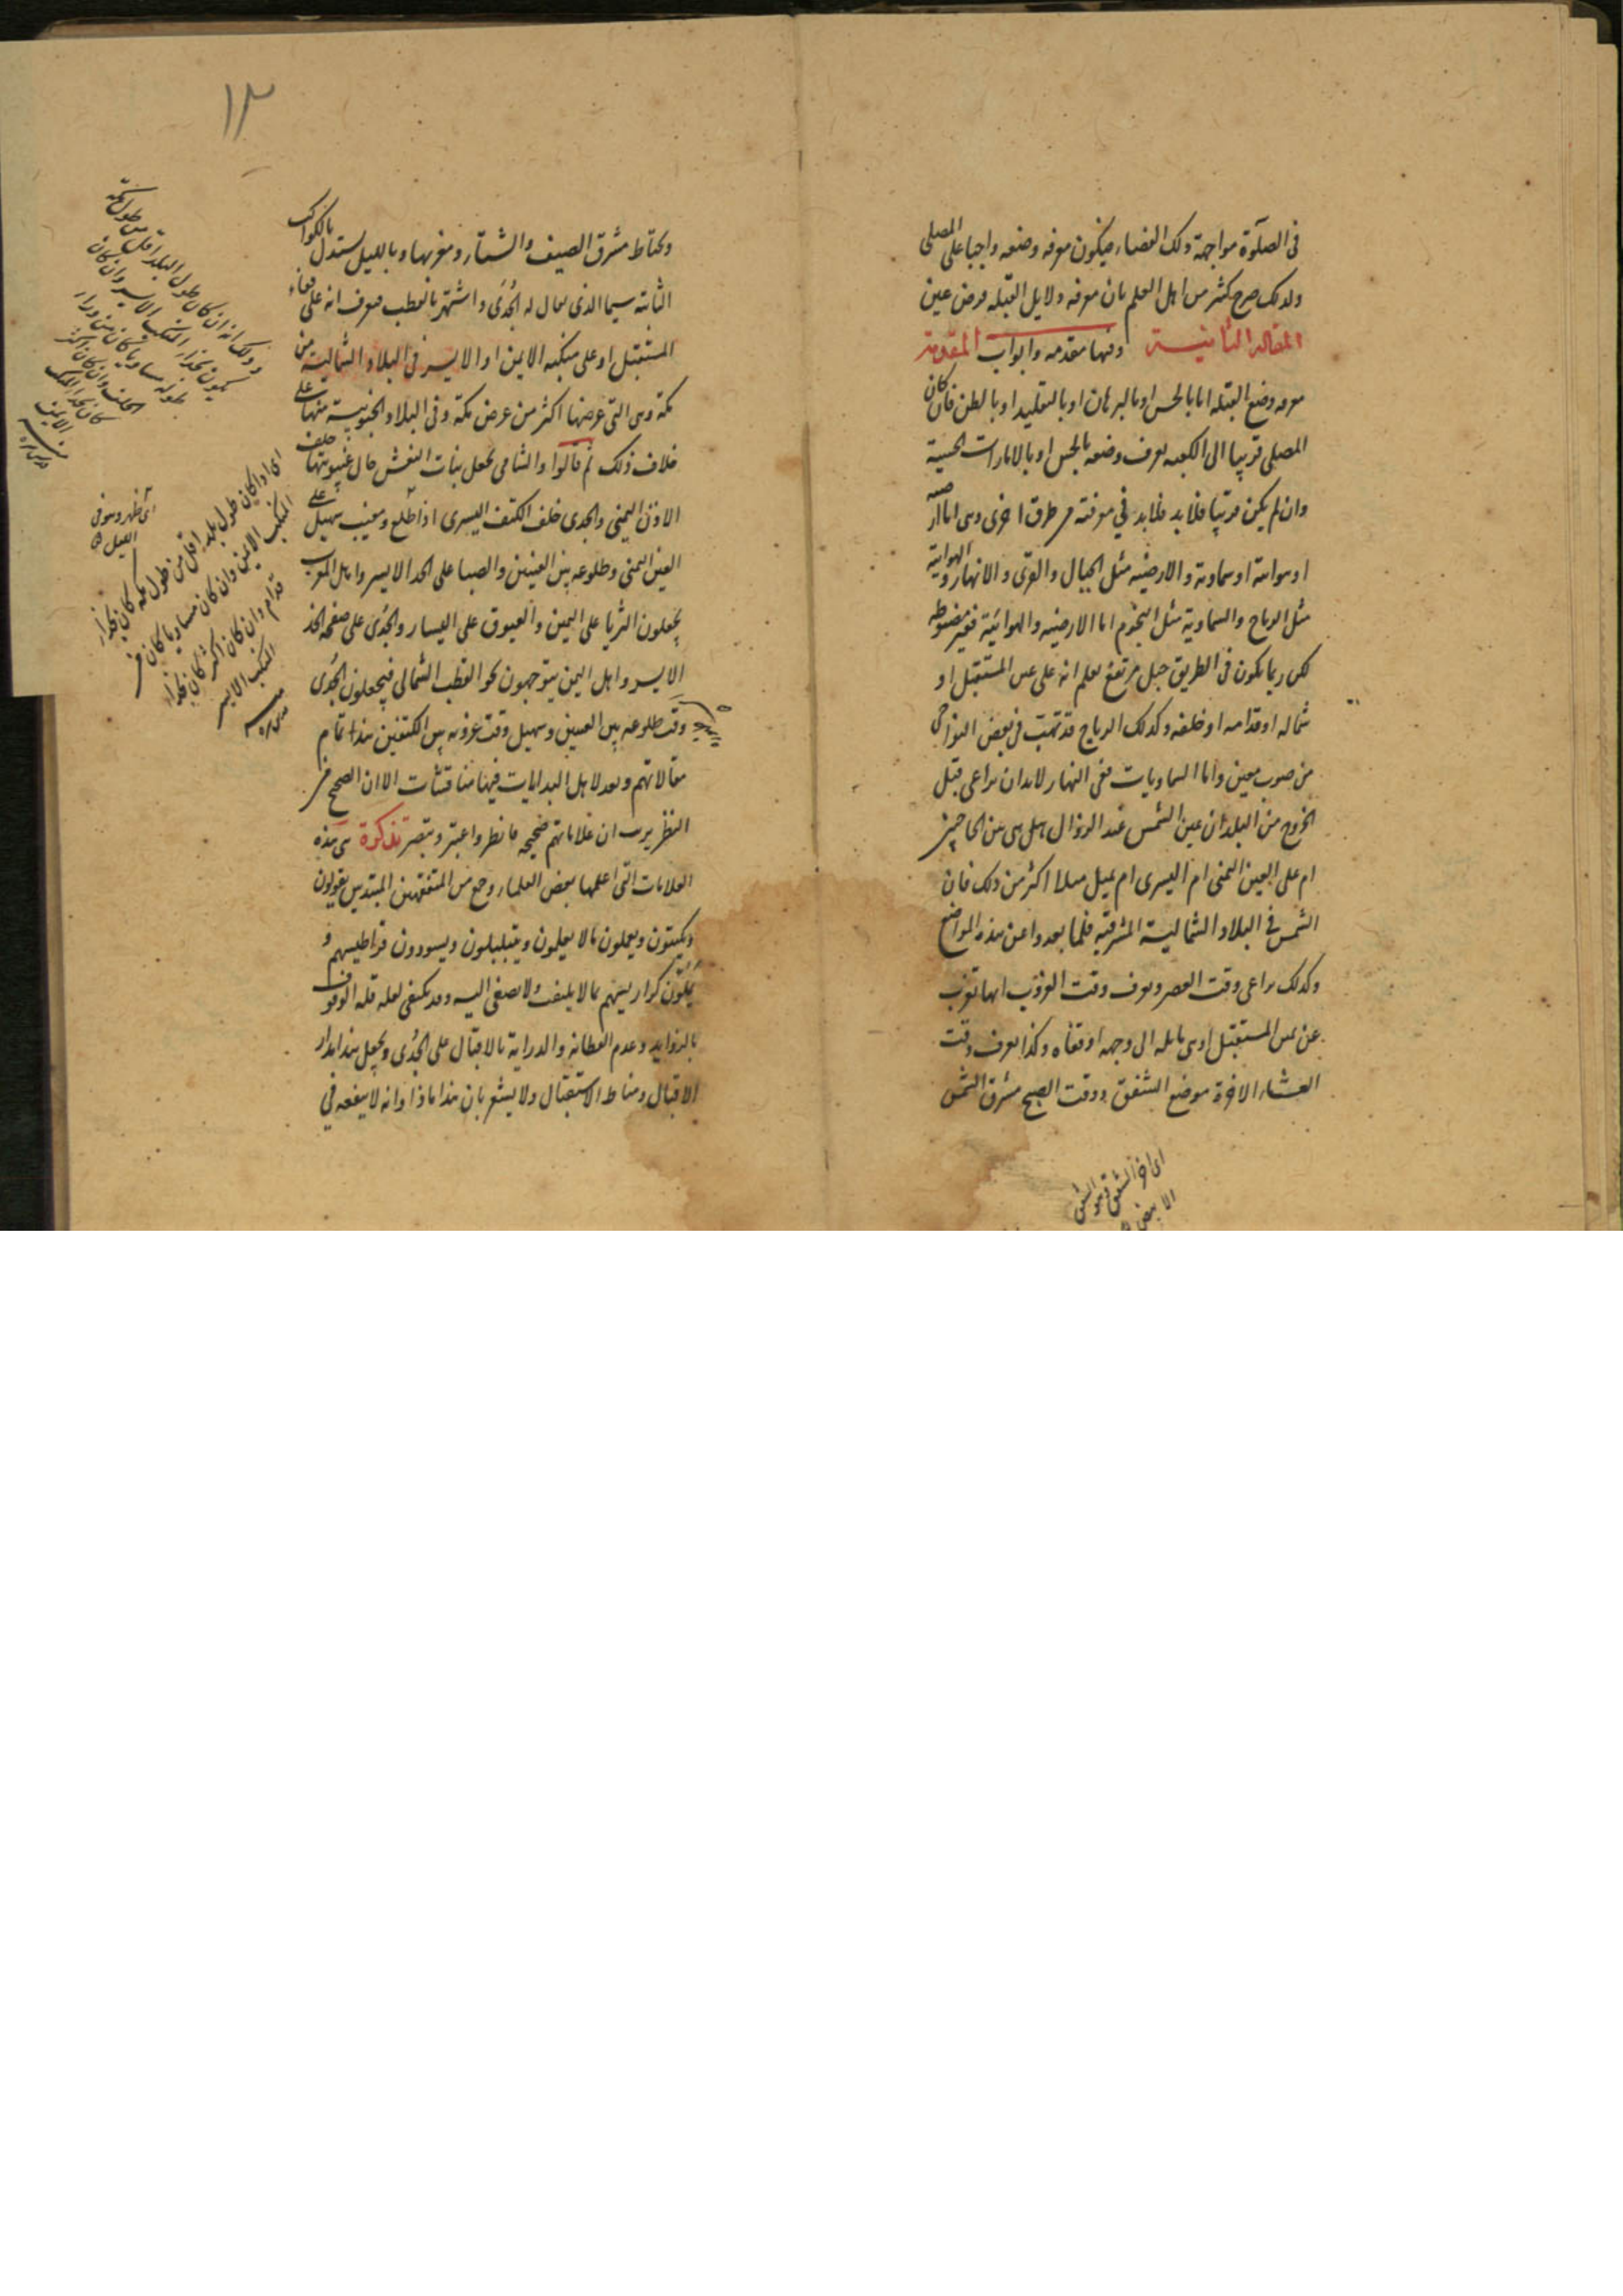 فى الصلوة مواجهة ذلك الفضاء فيكون معرفه وضعه واجبا على المصلى
ولذلك صرح كثير من اهل العلم بان معرفه دلايل القبله فرض عين
المقالة الثانية وفيها مقدمه وابواب المقدمة
معرفه وضع القبله اما بالحس او بالبرهان او بالتقليد او بالظن فان كان
المصلى قريبا الى الكعبه يعرف وضعه بالحس او بالامارات الحسية
وان لم يكن قريبا فلابد فلابد فى معرفته من طرق اخرى وهى اما ارضيه
او هوائية او سماوية والارضيه مثل الجبال والقرى والانهار والهوايية
مثل الرياح والسماوية مثل النجوم اما الارضيه والهوائية فغير مضبوطه
لكن ربما يكون فى الطريق جبل مرتفع يعلم انه على يمين المستقبل او
شماله او قدامه او خلفه وكذلك الرياح قد تهب فى بعض النواحى
من صوب معين واما السماويات ففى النهار لابد ان يراعى قبل
الخروج من البلد ان عين الشمس عند الزوال هل هى بين الحاجبين
ام على العين اليمنى ام اليسرى ام يميل ميلا اكثر من ذلك فان
الشمس فى البلاد الشمالية المشرقيه فلما يعدوا عن هذه المواضع
وكذلك يراعى وقت العصر ويعرف وقت الغروب انها تغرب
عن يمين المستقبل او هى مايله الى وجهه او قفاه وكذا يعرف وقت
العشاء الاخرة موضع الشفق ووقت الصبح مشرق الشمس
اى اخر الشفق وهو الشفق
الابيض
١٣
ويحتاط مشرق الصيف والشتاء ومغربهما وبالليل يستدل بالكواكب
الثابته سيما الذى يقال له الجدى واشتهر بالقطب فيعرف انه على قفاء
المستقبل او على منكبه الايمن او الايسر فى البلاد الشمالية من
مكة وهى التى عرضها اكثر من عرض مكة وفى البلاد الجنوبية منها على
خلاف ذلك ثم قالوا والشامى يجعل بنات النعش حال غيبوبتها خلف
الاذن اليمنى والجدى خلف الكتف اليسرى اذا طلع ومغيب سهيل على
العين اليمنى وطلوعه بين العينين والصبا على الخد الايسر واهل المغرب
يجعلون الثريا على اليمين والعيوق على اليسار والجدى على صفحة الخد
الايسر واهل اليمن يتوجهون نحو القطب الشمالى فيجعلون الجدى
وقت طلوعه بين العينين وسهيل وقت غروبه بين الكتفين هذا تمام
مقالاتهم وبعد لاهل البدايات فيها مناقشات الا ان الصحيح من
النظر يريك ان علاماتهم صحيحه فانظر واعتبر وتبصر تذكرة هى هذه
العلامات التى اعلمها بعض العلماء وجمع من المتفقهين المبتدين يقولون
ويكتبون ويعملون بما لا يعلمون ويتبلبلون ويسودون قراطيسهم و
يملون كراريسهم بما لا يلتفت ولا يصغى اليه وقد يكتفى لعله قله الوقوف
بالزوايد وعدم الفطانه والدراية بالاقبال على الجدى ويجعل هذا مدار
الاقبال ومناط الاستقبال ولا يشعر بان هذا ماذا وانه لا ينفعه فى
وذلك انه ان كان طول البلد اقل من طول مكة
يكون بحذاء المنكب الايسر وان كان
طوله مساويا كان من وراء
الخلف وان كان اكثر
كان بحذاء المنكب
الايمن
اى ظهر وهو فى
الليل
اى اذا كان طول بلده اقل من طول مكه كان بحذاء
المنكب الايمن وان كان مساويا كان من
قدام وان كان اكثر كان بحذاء
المنكب الايسر